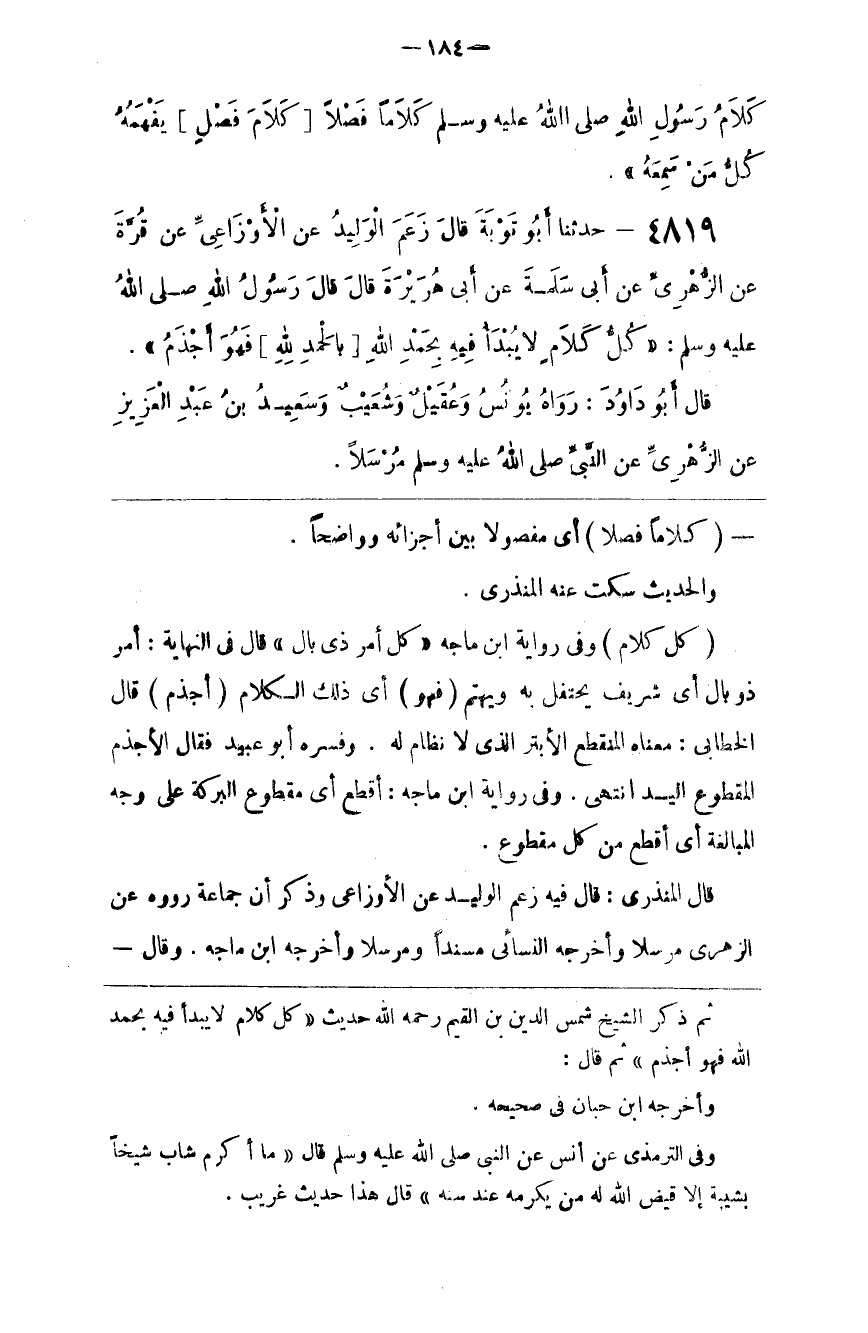 — ١٨٤ —
كَلاَمُ رَسُولِ اللهِ صلى اللهُ عليه وسلم كَلاَماً فَصْلاً [ كَلاَمَ فَصْلٍ ] يَفْهَمُهُ
كُلُّ مَنْ سَمِعَهُ » .
٤٨١٩ — حدثنا أَبُو تَوْبَةَ قالَ زَعَمَ الْوَلِيدُ عن الْأَوْزَاعِىِّ عن قُرَّةَ
عن الزُّهْرِىِّ عن أبى سَلَمَةَ عن أبى هُرَيْرَةَ قالَ قالَ رَسُولُ اللهِ صلى اللهُ
عليه وسلم : « كُلُّ كَلاَمٍ لايُبْدَأُ فِيهِ بِحَمْدِ اللهِ [ بالْحَمدِ لِلهِ ] فَهُوَ أَجْذَمُ » .
قال أَبُو دَاوُدَ : رَوَاهُ يُونُسُ وَعُقَيْلٌ وَشُعَيْبٌ وَسَعِيدُ بنُ عَبْدِ الْعَزِيزِ
عن الزُّهْرِىِّ عن النَّبِىِّ صلى اللهُ عليه وسلم مُرْسَلاً .
— ( كلاماً فصلا ) أى مفصولا بين أجزائه وواضحاً .
والحديث سكت عنه المنذرى .
( كل كلام ) وفى رواية ابن ماجه « كل أمر ذى بال » قال فى النهاية : أمر
ذو بال أى شريف يحتفل به ويهتم ( فهو ) أى ذلك الكلام ( أجذم ) قال
الخطابى : معناه المنقطع الأبتر الذى لا نظام له . وفسره أبو عبيد فقال الأجذم
المقطوع اليد انتهى . وفى رواية ابن ماجه : أقطع أى مقطوع البركة على وجه
المبالغة أى أقطع من كل مقطوع .
قال المنذرى : قال فيه زعم الوليد عن الأوزاعى وذكر أن جماعة رووه عن
الزهرى مرسلا وأخرجه النسائى مسنداً ومرسلا وأخرجه ابن ماجه . وقال —
ثم ذكر الشيخ شمس الدين بن القيم رحمه الله حديث « كل كلام لايبدأ فيه بحمد
الله فهو أجذم » ثم قال :
وأخرجه ابن حبان فى صحيحه .
وفى الترمذى عن أنس عن النبى صلى الله عليه وسلم قال « ما أكرم شاب شيخاً
بشيبة إلا قيض الله له من يكرمه عند سنه » قال هذا حديث غريب .